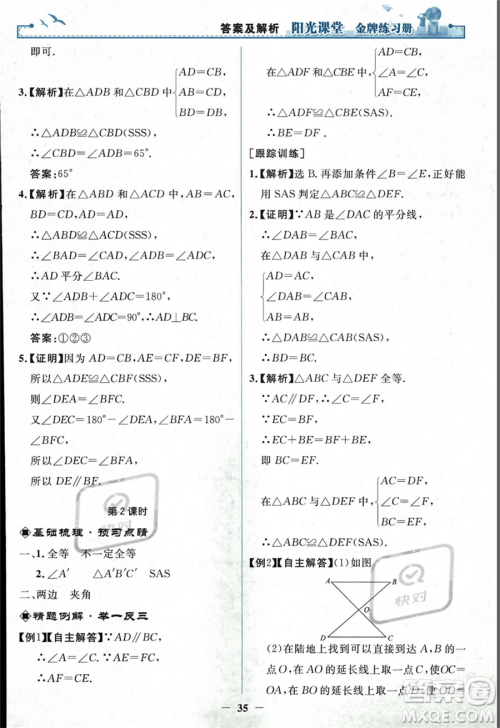 答案及解析 阳光课堂 金牌练习册
即可.
3.【解析】在△ADB 和△CBD 中
AD=CB,
AB=CD,
BD=DB,
∴△ADB≌△CBD(SSS),
∴∠BCD=∠BAD=65°.
答案:65°
4.【解析】在△ABD 与△ACD 中,AB=AC,
BD=CD,AD=AD,
∴△ABD≌△ACD(SSS),
∴∠BAD=∠CAD,∠ADB=∠ADC,
∴AD 平分∠BAC.
又∵∠ADB+∠ADC=180°,
∴∠ADB=∠ADC=90°,∴AD⊥BC.
答案:①②③
5.【证明】因为 AD=CB,AE=CF,DE=BF,
所以△ADE≌△CBF(SSS),
则∠AED=∠CFB,
又∠DEC=180°-∠AED,∠BFA=180°-
∠CFB,
所以∠DEC=∠BFA,
所以 DE∥BF.
第2课时
基础梳理·预习点睛
一、1.全等 不一定全等
2.∠A′ ∠A′B′C′ SAS
二、两边 夹角
精题例解·举一反三
[例1]【自主解答】∵AD∥BC,
∴∠A=∠C,
在△ADF 和△CBE 中,
AD=CB,
∠A=∠C,
AF=CE,
∴△ADF≌△CBE(SAS).
∴BE=DF.
[跟踪训练]
1.【解析】选 B. 再添加条件∠C=∠F,正好能
用 SAS 判定△ABC≌△DEF.
2.【证明】∵AB 是∠DAC 的平分线,
∴∠DAB=∠BAC,
在△DAB 与△CAB 中,
AD=AC,
∠DAB=∠CAB,
AB=AB,
∴△DAB≌△CAB(SAS),
∴BD=BC.
3.【解析】△ABC 与△DEF 全等.
∵AB∥DE,∴∠A=∠D,
∵AF=DC,
∴AF+FC=DC+FC,
即 AC=DF.
在△ABC 与△DEF 中
AC=DF,
∠A=∠D,
AB=DE,
∴△ABC≌△DEF(SAS)
[例2]【自主解答】(1)如图
A B
O
D C
(2)在陆地上找到可以直接到达 A,B 的一
点 O,在 AO 的延长线上取一点 C,使 OC=
OA,在 BO 的延长线上取一点 D,使 OD=
35
快对
快对
答案圈
MXQE.COM